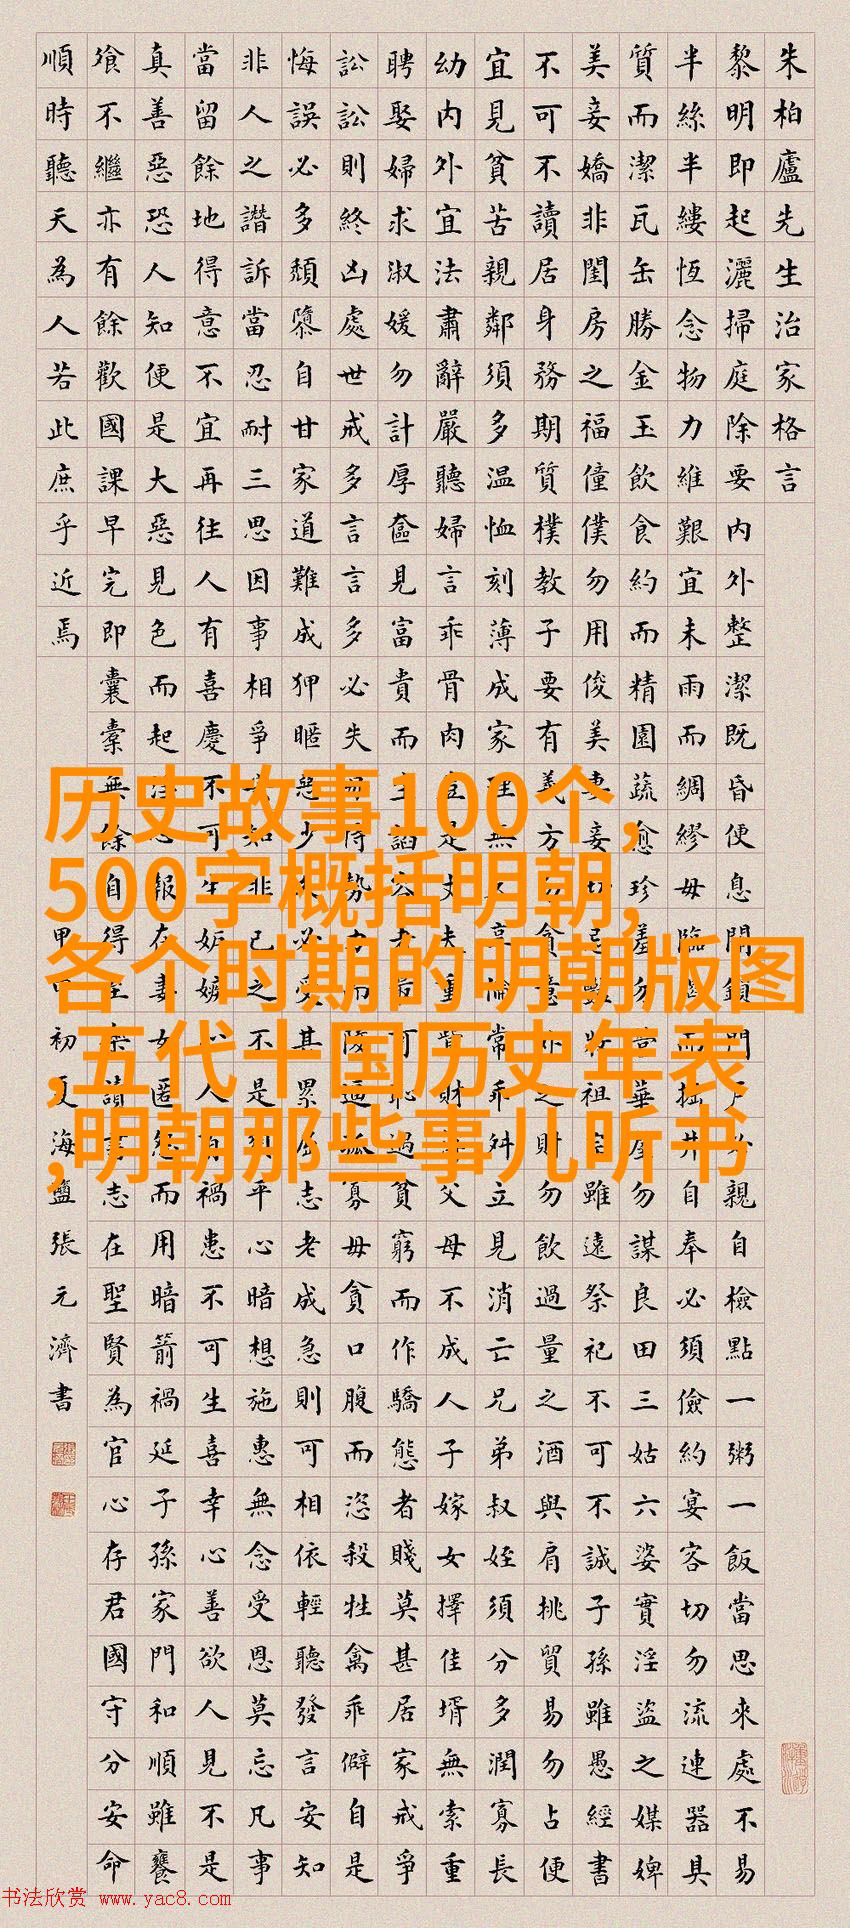 朱柏廬先生治家格言
黎明即起灑掃庭除要內外整潔既昏便息關鎖門戶必親自檢點一粥一飯當思來處不易
半絲半縷恆念物力維艱宜未雨而綢繆毋臨而掘井自奉必須儉約宴客切勿流連器具
質而潔瓦缶勝金玉飲食約而精園蔬愈珍羞勿營華屋勿謀良田三姑六婆實淫盜之媒婢
美妾嬌非閨房之福僮僕勿用俊美妻妾切忌祖宗雖遠祭祀不可不誠子孫雖愚經書
不可不讀居身務期質樸教子要有義方勿貪意外之財勿飲過量之酒與肩挑貿易勿占便
宜見貧苦親鄰須多溫恤刻薄成家理無久享倫常乖舛立見消亡兄弟叔姪須分多潤寡長
幼內外宜法肅辭嚴聽婦言乖骨肉豈是丈夫重貲財父母不成人子嫁女擇佳壻無索重
聘娶婦求淑媛勿計厚奩見富貴而生諂容者最可恥過貧窮而作驕態者賤莫甚居家戒爭
訟訟則終凶處世戒多言言多必失勿恃勢力而陵逼孤寡毋貪口腹而恣殺牲禽乖僻自是
悔誤必多頹隳自甘家道難成狎暱惡少久必受其累屈志老成急則可相依輕聽發言安知
非人之譖訴當忍耐三思因事相爭安知非己之不是須平心暗想施惠無念受恩莫忘凡事
當留餘地得意不宜再往人有喜慶不可生妒嫉心人有禍患不可生喜幸心善欲人見不是
真善惡恐人知便是大惡見色而起淫心報在妻女匿怨而用暗箭禍延子孫家門和順雖饔
飧不繼亦有餘歡國課早完即囊橐無餘自得至樂讀書志在聖賢為官心存君國守分安命
順時聽天為人若此庶乎近焉
甲申初夏海鹽張元濟書
历史故事100个,
500字概括明朝,
各个时期的明朝版图
,五代十国历史年表
,明朝那些事儿听书
书法欣赏 www.yac8.com